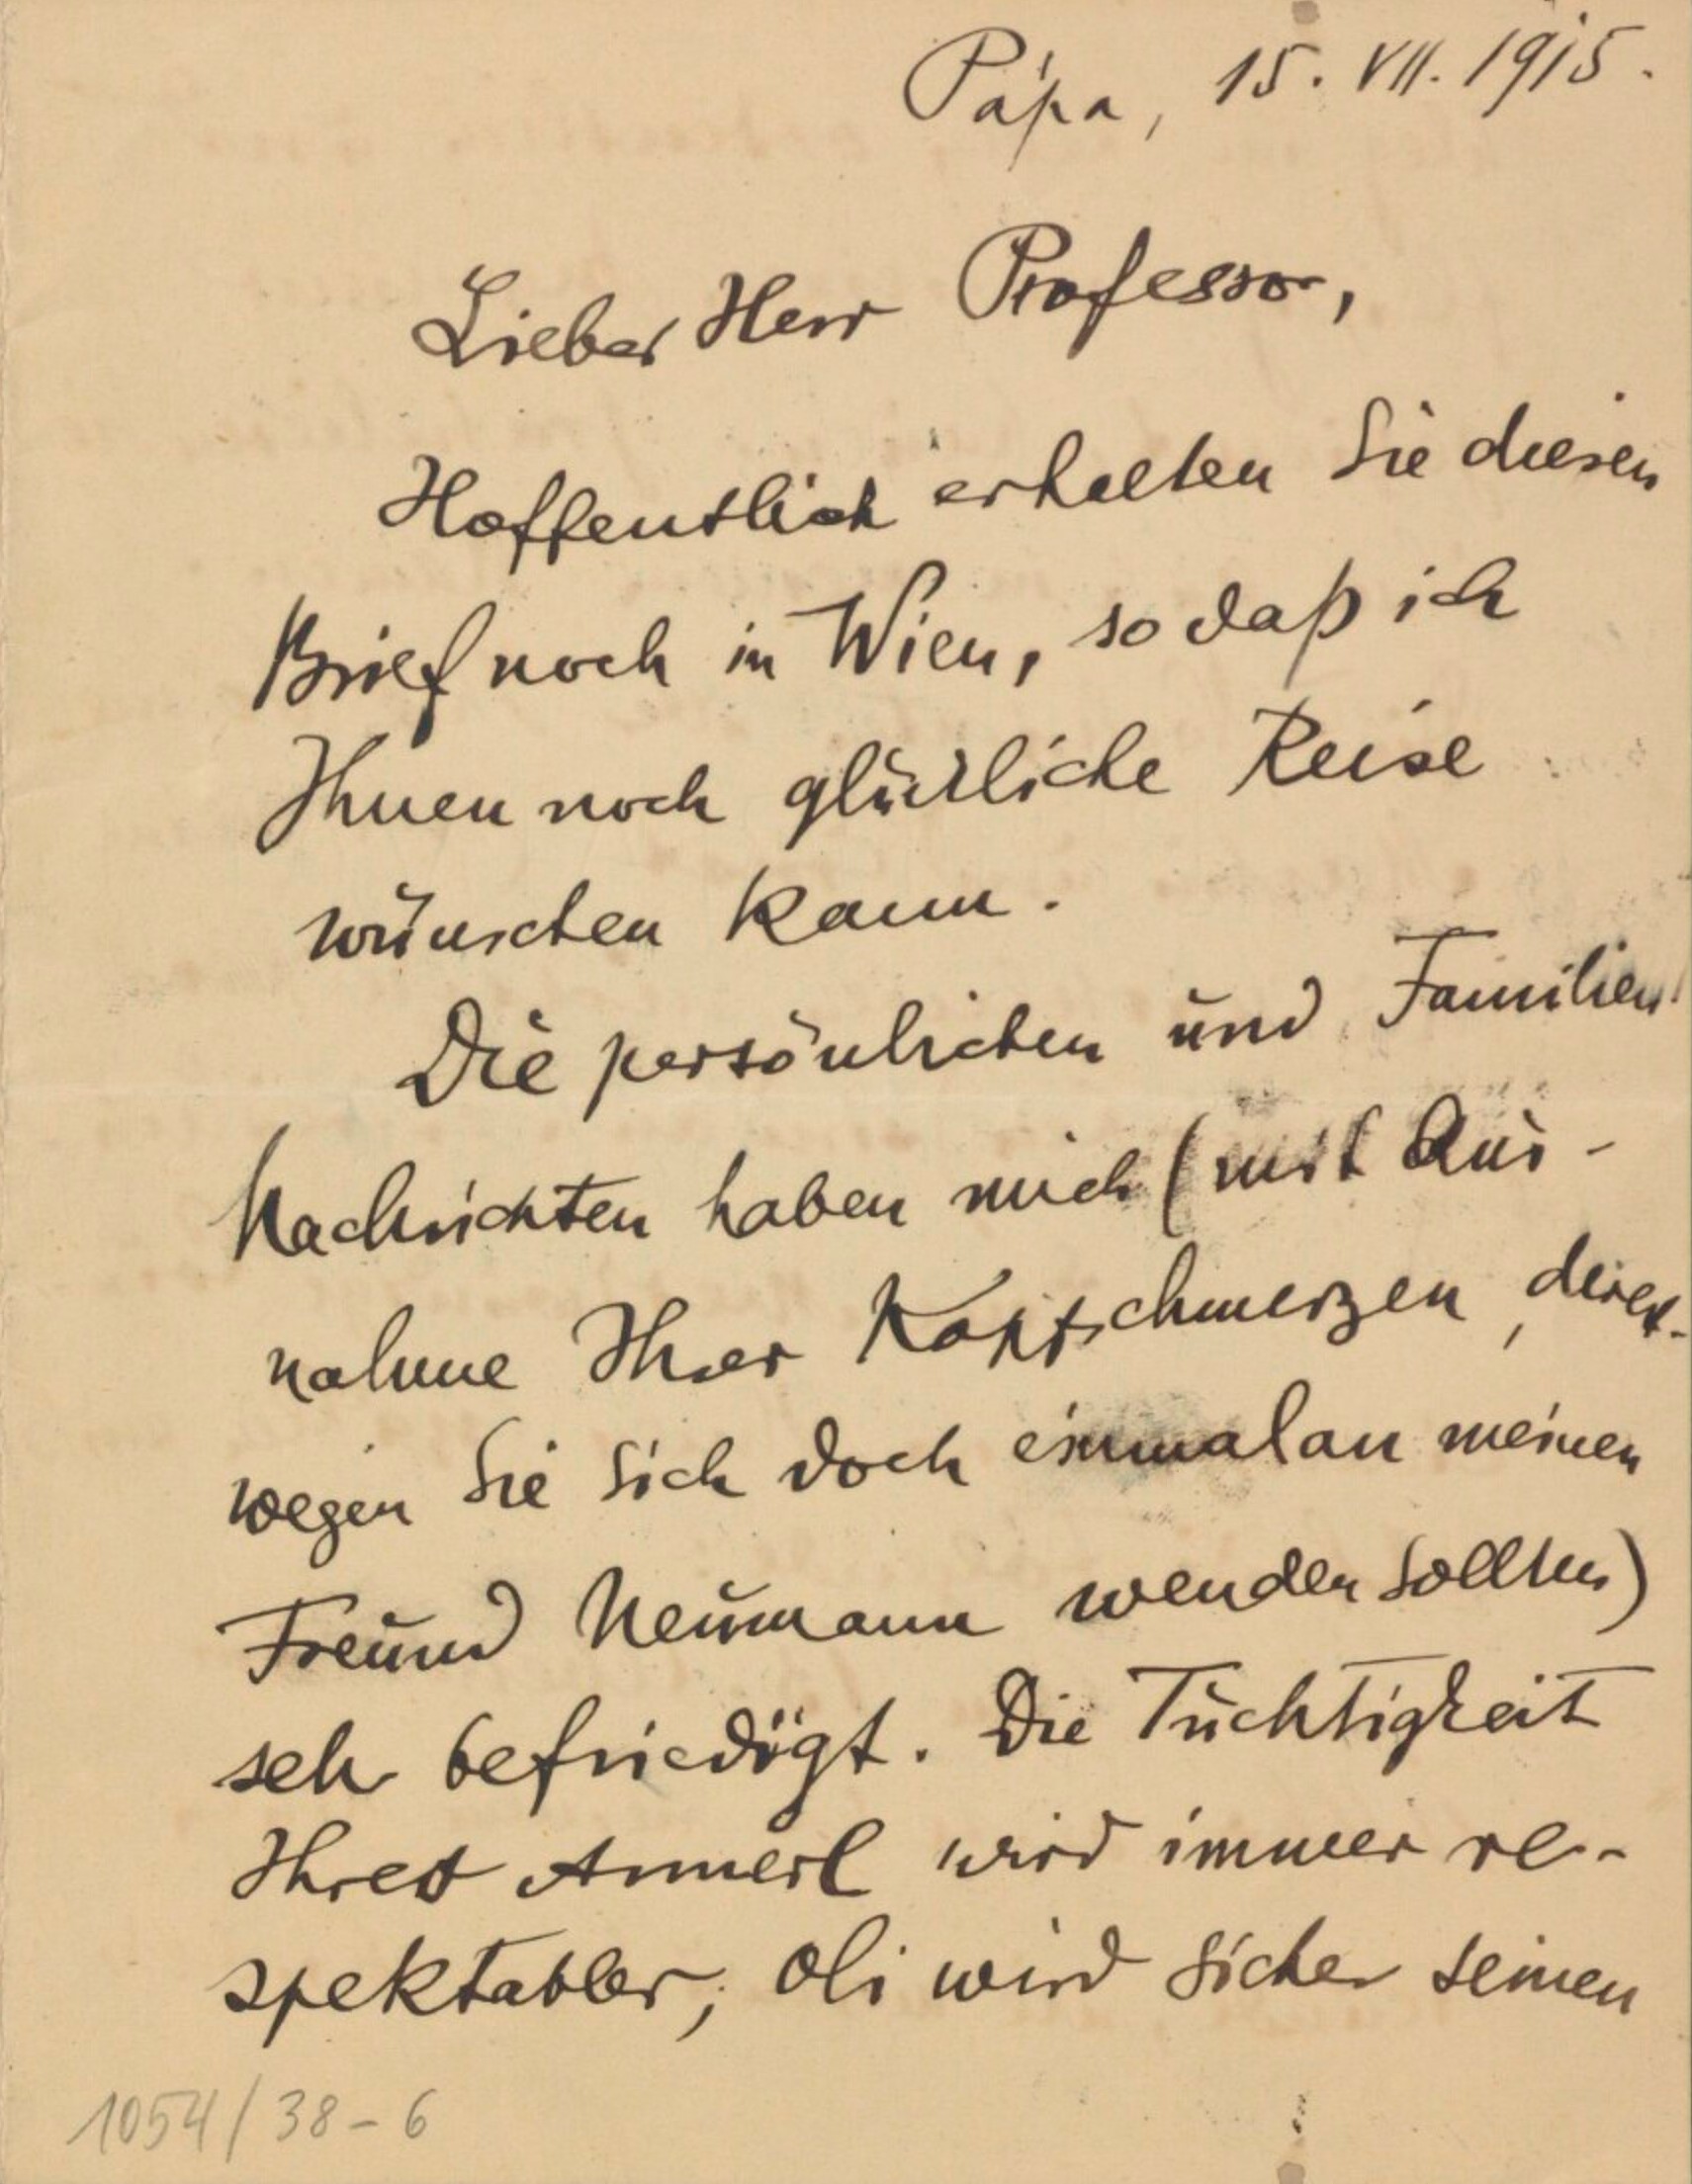 Pápa, 15. VII. 1915.
Lieber Herr Professor,
Hoffentlich erhalten Sie diesen
Brief noch in Wien, so daß ich
Ihnen noch glückliche Reise
wünschen kann.
Die persönlichen und Familien-
Nachrichten haben mich (mit Aus-
nahme Ihrer Kopfschmerzen, deret-
wegen Sie sich doch einmal an meinen
Freund Neumann wenden sollten)
sehr befriedigt. Die Tüchtigkeit
Ihres Annerl wird immer re-
spektabler; Oli wird sicher seinen
1054/38-6